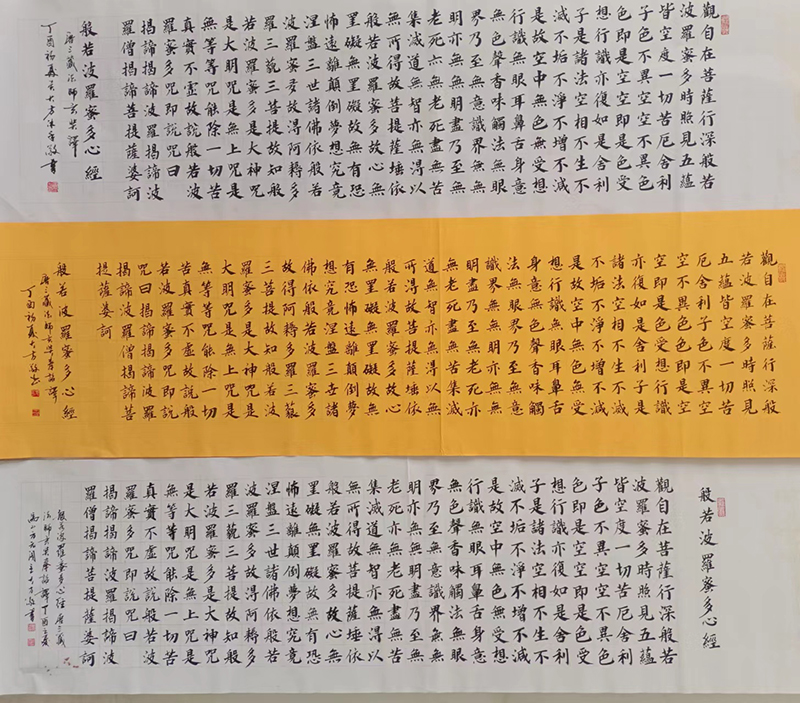 觀自在菩薩行深般若
波羅蜜多時照見五蘊
皆空度一切苦厄舍利
子色不異空空不異色
色即是空空即是色受
想行識亦復如是舍利
子是諸法空相不生不
滅不垢不淨不增不減
是故空中無色無受想
行識無眼耳鼻舌身意
無色聲香味觸法無眼
界乃至無意識界無無
明亦無無明盡乃至無
老死亦無老死盡無苦
集滅道無智亦無得以
無所得故菩提薩埵依
般若波羅蜜多故心無
罣礙無罣礙故無有恐
怖遠離顛倒夢想究竟
涅盤三世諸佛依般若
波羅蜜多故得阿耨多
羅三藐三菩提故知般
若波羅蜜多是大神咒
是大明咒是無上咒是
無等等咒能除一切苦
真實不虛故說般若波
羅蜜多咒即說咒曰
揭諦揭諦波羅揭諦波
羅僧揭諦菩提薩婆訶
般若波羅蜜多心經
唐三藏法師玄奘譯
丁酉初夏
觀自在菩薩行深般
若波羅蜜多時照見
五蘊皆空度一切苦
厄舍利子色不異空
空不異色色即是空
空即是色受想行識
亦復如是舍利子是
諸法空相不生不滅
不垢不淨不增不減
是故空中無色無受
想行識無眼耳鼻舌
身意無色聲香味觸
法無眼界乃至無意
識界無無明亦無無
明盡乃至無老死亦
無老死盡無苦集滅
道無智亦無得以無
所得故菩提薩埵依
般若波羅蜜多故心
無罣礙無罣礙故無
有恐怖遠離顛倒夢
想究竟涅盤三世諸
佛依般若波羅蜜多
故得阿耨多羅三藐
三菩提故知般若波
羅蜜多是大神咒是
大明咒是無上咒是
無等等咒能除一切
苦真實不虛故說般
若波羅蜜多咒即說
咒曰揭諦揭諦波羅
揭諦波羅僧揭諦菩
提薩婆訶
般若波羅蜜多心經
唐三藏法師玄奘奉詔譯
丁酉初夏
般若波羅蜜多心經
觀自在菩薩行深般若
波羅蜜多時照見五蘊
皆空度一切苦厄舍利
子色不異空空不異色
色即是空空即是色受
想行識亦復如是舍利
子是諸法空相不生不
滅不垢不淨不增不減
是故空中無色無受想
行識無眼耳鼻舌身意
無色聲香味觸法無眼
界乃至無意識界無無
明亦無無明盡乃至無
老死亦無老死盡無苦
集滅道無智亦無得以
無所得故菩提薩埵依
般若波羅蜜多故心無
罣礙無罣礙故無有恐
怖遠離顛倒夢想究竟
涅盤三世諸佛依般若
波羅蜜多故得阿耨多
羅三藐三菩提故知般
若波羅蜜多是大神咒
是大明咒是無上咒是
無等等咒能除一切苦
真實不虛故說般若波
羅蜜多咒即說咒曰
揭諦揭諦波羅揭諦波
羅僧揭諦菩提薩婆訶
般若波羅蜜多心經唐三藏
法師玄奘奉詔譯丁酉